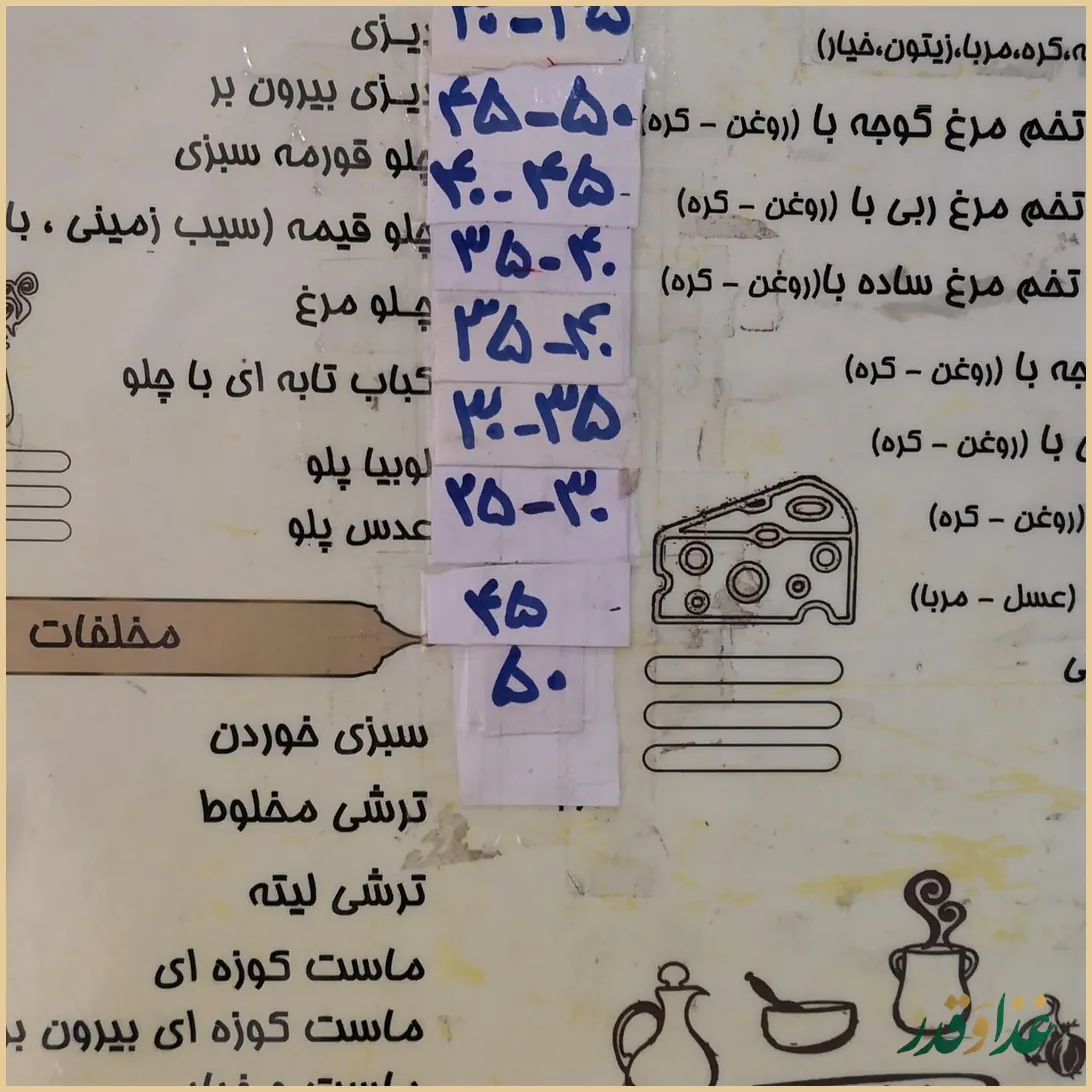 ه،کره،مربا،زیتون،خیار)
تخم مرغ گوجه با (روغن - کره)
تخم مرغ ربی با (روغن - کره)
تخم مرغ ساده با(روغن - کره)
جه با (روغن - کره)
با (روغن - کره)
(روغن - کره)
(عسل - مربا)
۴۵-۵۰
۴۰-۴۵
۳۵-۴۰
۳۵-۴۰
۳۰-۳۵
۲۵-۳۰
۴۵
۵۰
دیزی
دیزی بیرون بر
چلو قورمه سبزی
چلو قیمه (سیب زمینی ، با
چلو مرغ
کباب تابه ای با چلو
لوبیا پلو
عدس پلو
مخلفات
سبزی خوردن
ترشی مخلوط
ترشی لیته
ماست کوزه ای
ماست کوزه ای بیرون بر
غذا و قدر